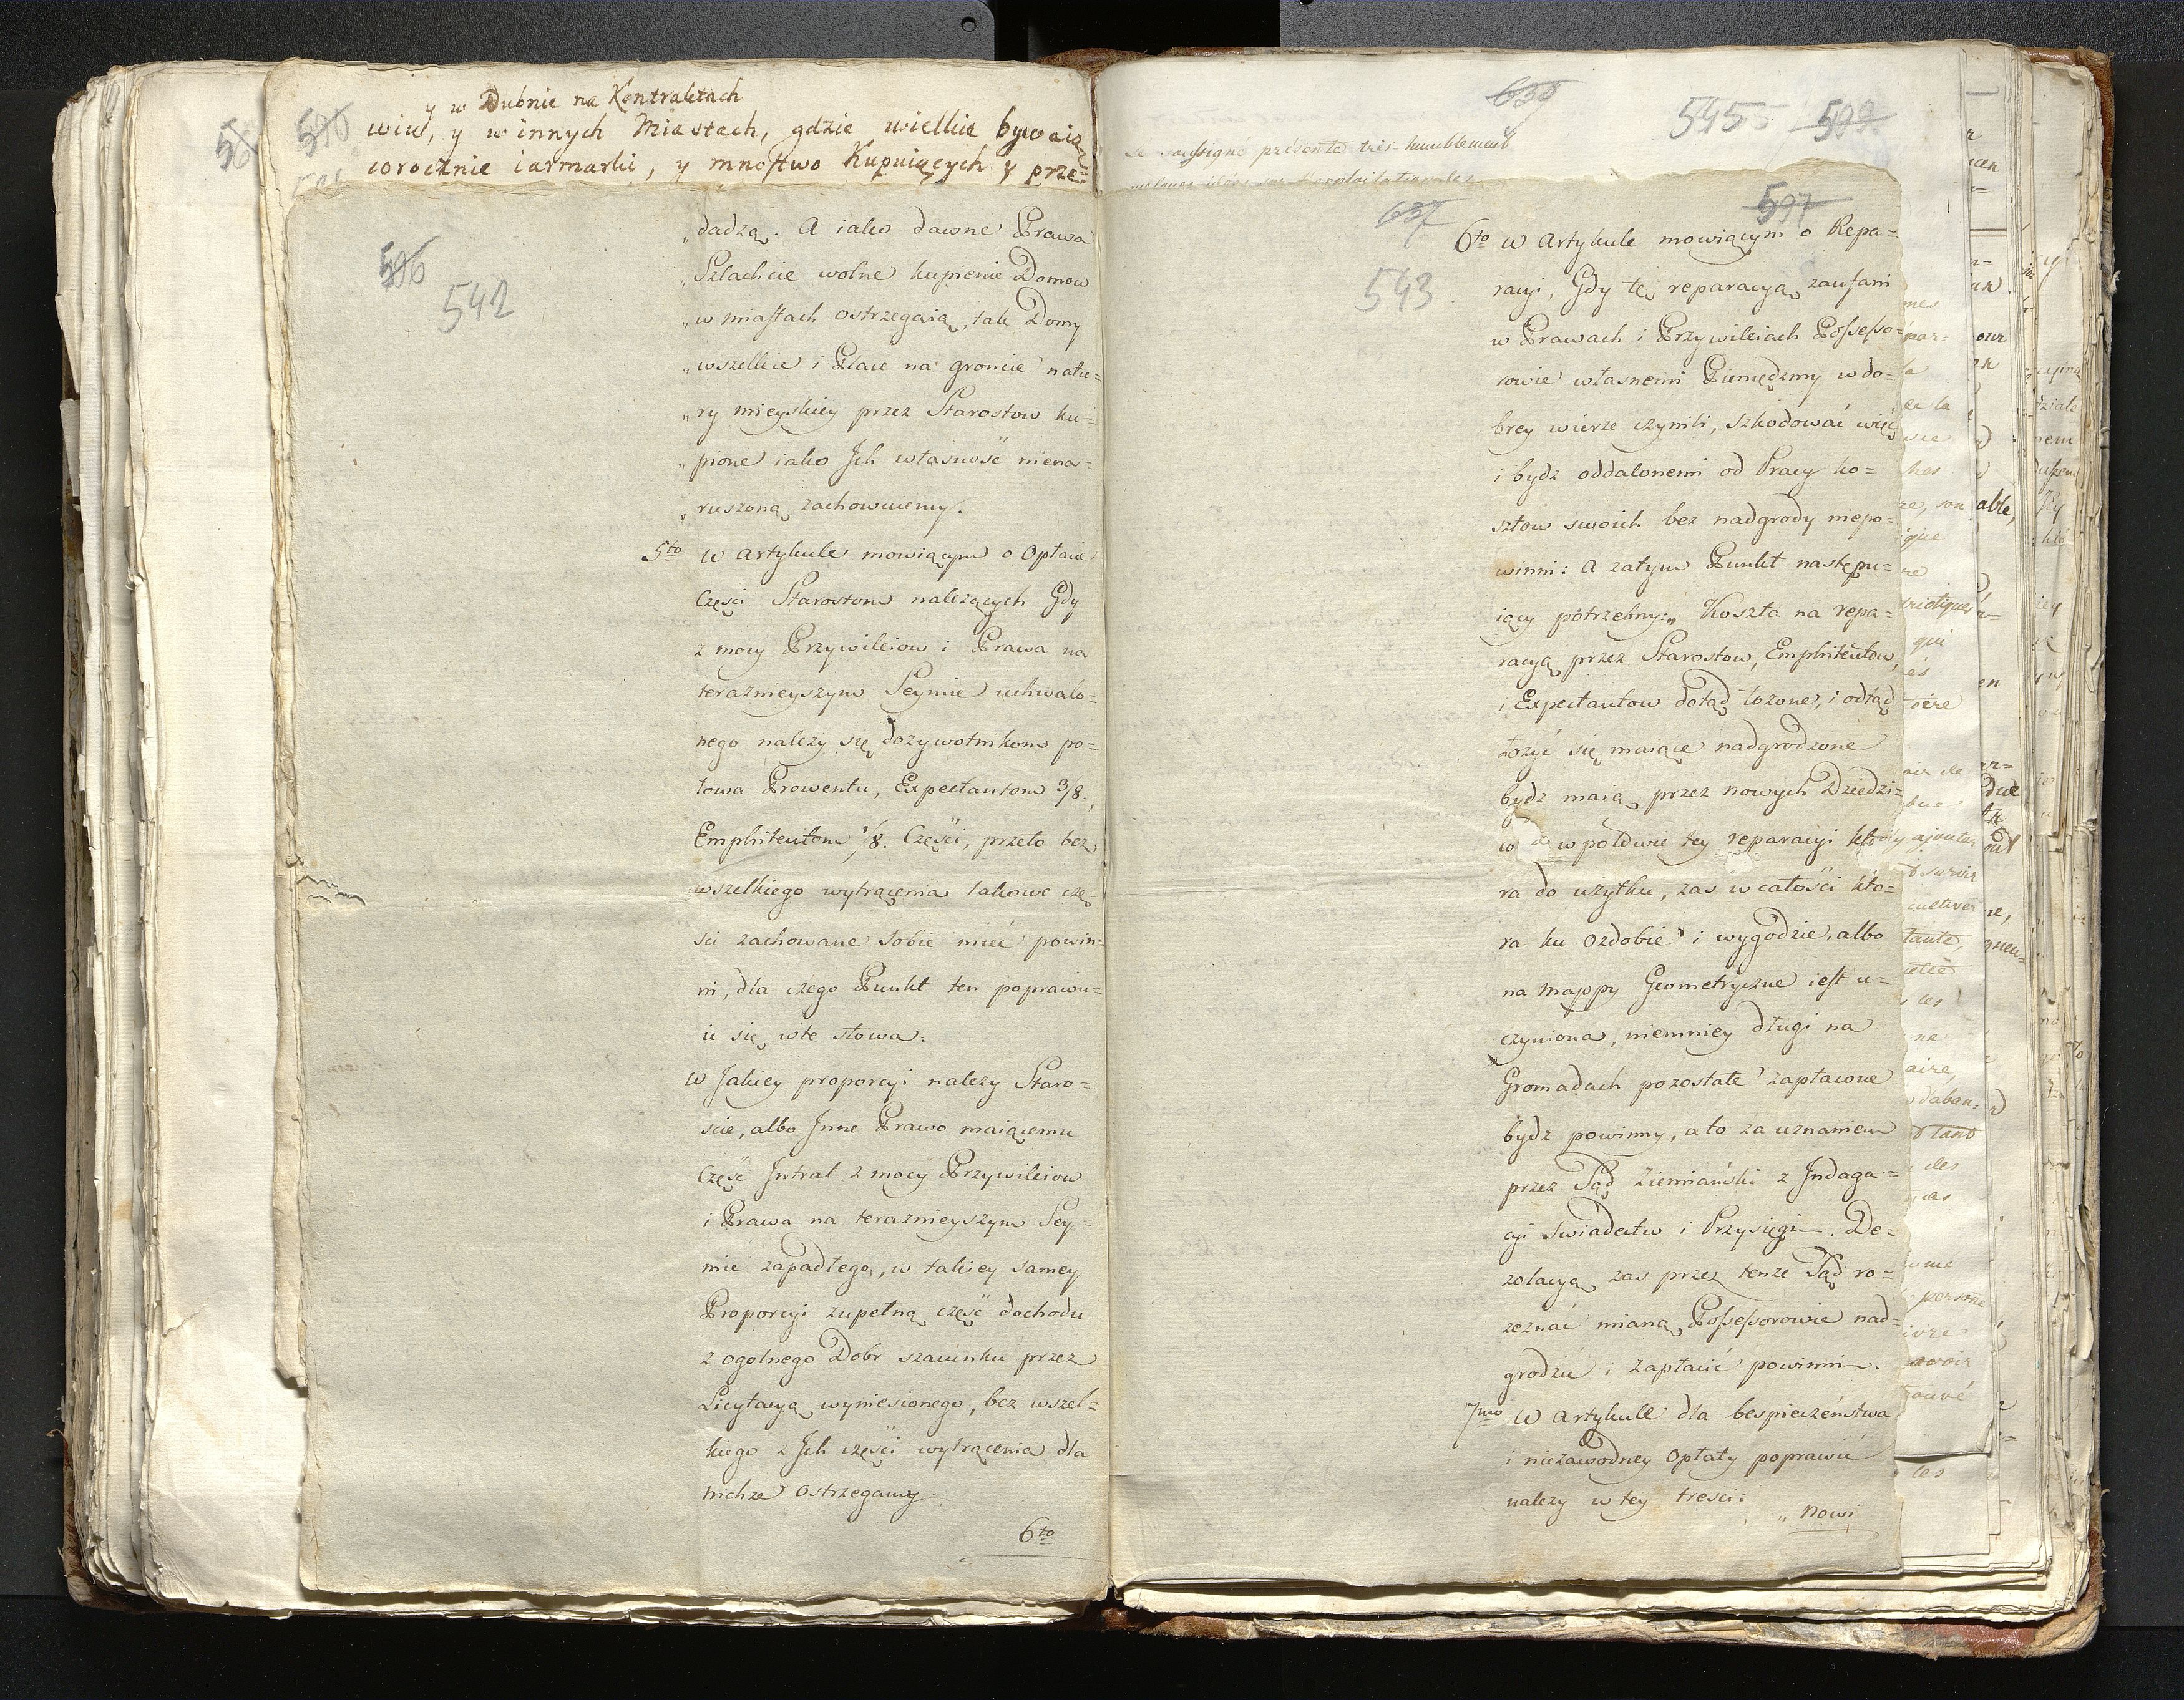 y w Dubnie na Kontraktach
wie, y w innych Miastach, gdzie wielkie bywaią
corocznie iarmarki, y mnostwo Kupuiących y prze=
590
596
542
„dadzą. A iako dawne Prawa
„Szlachcie wolne kupienie Domow
„w miastach ostrzegaią, tak Domy
„wszelkie i Place na groncie natu=
„ry mieyskiey przez Starostow ku=
„pione iako Ich własność niena=
„ruszoną zachowuiemy.
5to W Artykule mowiącym o Opłacie
Części Starostom należących Gdy
z mocy Przywileiow i Prawa na
teraznieyszym Seymie uchwalo=
nego należy się dożywotnikom po=
łowa Prowentu, Expectantom 3/8.,
Emphiteutom 1/8. Części, przeto bez
wszelkiego wytrącenia takowe czę=
ści zachowane sobie mieć powin=
ni, dla czego Punkt ten poprawu=
ie się w te słowa.
W Jakiey proporcyi należy Staro=
ście, albo Inne Prawo maiącemu
Część Intrat z mocy Przywileiow
i Prawa na teraznieyszym Sey=
mie zapadłego, w takiey samey
Proporcyi zupełną część dochodu
z ogolnego Dobr szacunku przez
Licytacyą wyniesionego, bez wszel=
kiego z Ich części wytrącenia dla
nichże ostrzegamy.
6to
639
5455
599
Le soussigné présente très-humblement
637
597
543
6to W Artykule mowiącym o Repa=
racyi, Gdy tę reparacyą zaufani
w Prawach i Przywileiach Possesso=
rowie własnemi Pieniędzmy w do=
brey wierze czynili, szkodować więc
i bydz oddalonemi od Pracy ko=
sztow swoich bez nadgrody niepo=
winni: A zatym Punkt następu=
iący potrzebny: „Koszta na repa=
racyą przez Starostow, Emphiteutow,
i Expectantow dotąd łożone, i odtąd
łożyć się maiące nadgrodzone
bydz maią przez nowych Dziedzi=
w połowie tey reparacyi kto=
ra do użytku, zas w całości kto=
ra ku ozdobie i wygodzie, albo
na Mappy Geometryczne iest u=
czyniona, niemniey długi na
Gromadach pozostałe zapłacone
bydz powinny, a to za uznaniem
przez Sąd Ziemiański z Indaga=
cyi Swiadectw i Przysięgi. De=
zolacyą zas przez tenże Sąd ro=
zeznać mianą Possessorowie nad=
grodzić i zapłacić powinni.
7mo W Artykule dla bespieczeństwa
i niezawodney Opłaty poprawić
należy w tey tresci:
„Nowi